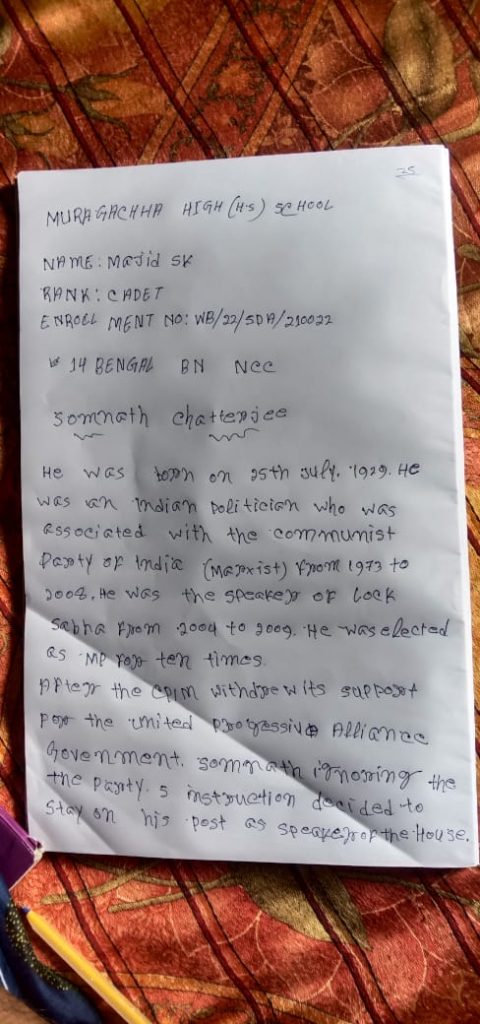 25
MURAGACHHA HIGH (H.S) SCHOOL
NAME: Majid SK
RANK: CADET
ENROLLMENT NO: WB/22/SDA/210022
14 BENGAL BN NCC
Somnath Chatterjee
He was born on 25th July, 1929. He
was an Indian politician who was
associated with the communist
Party of India (Marxist) from 1973 to
2008. He was the speaker of Lock
Sabha from 2004 to 2009. He was elected
as MP for ten times.
After the CPIM withdrew its support
for the united Progressive Alliance
Govenment. Somnath ignoring the
the party.s instruction decided to
stay on his post as speaker of the House.